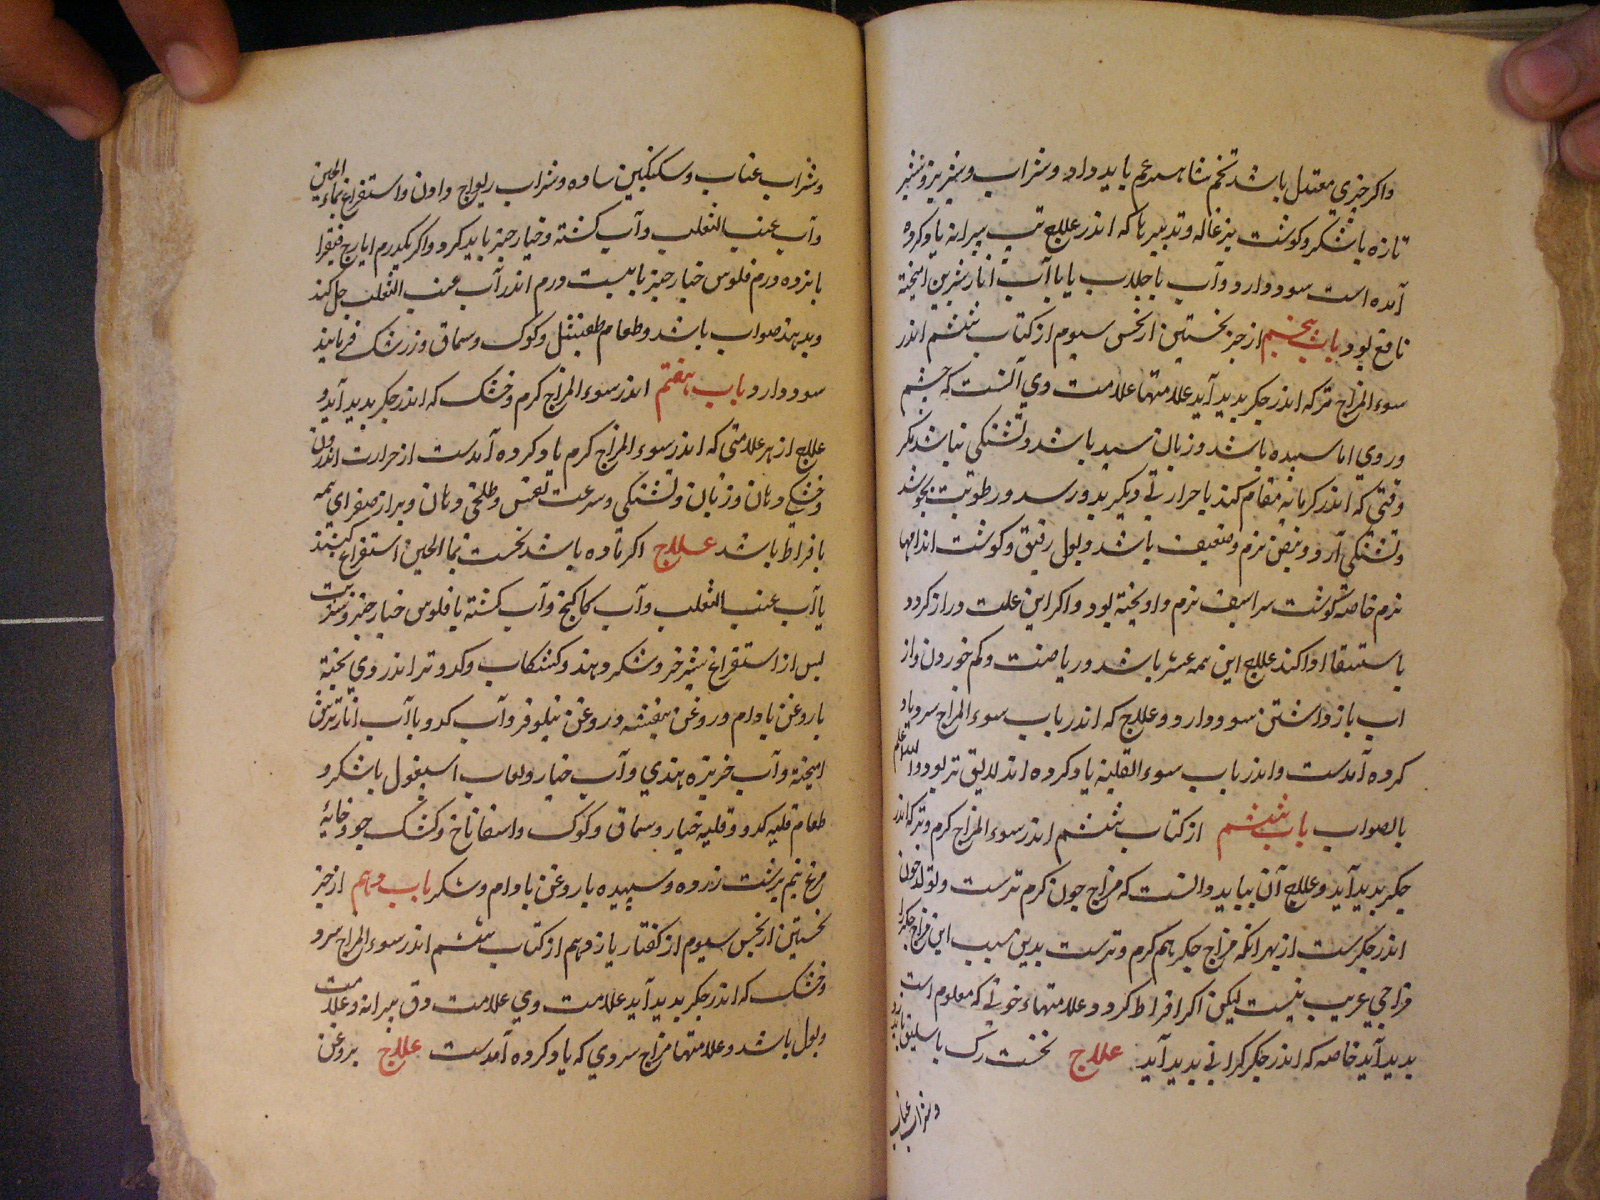 واکر چیزی معتدل باشد تخم شاهسپرغم باید داد و شراب و شیر بز و شیر
تازه با شکر و کوشت بزغاله و تدبیرها که اندر علاج تب پیرانه یاد کرده
آمده است سود دارد و آب با جلاب یا با آب انار شیرین امیخته
نافع بود و باب پنجم از جزء نخستین از بخش سیوم از کتاب ششم اندر
سوء المزاج تر که اندر جکر بدید آید علامتها علامت وی آنست که چشم
و روی اماسیده باشد و زبان سپید باشد و تشنکی نباشد مکر
وقتی که اندر کرمابه مقام کند یا حرارتی دیکر بدو رسد و رطوبت بجوشد
و تشنکی آرد و نبض نرم و ضعیف باشد و بول رقیق و کوشت اندامها
نرم خاصه کوشت سراسیف نرم و اویخته بود و اکر این علت دراز کردد
باستسقا ادا کند علاج این همه عسر باشد و ریاضت و کم خوردن و از
اب باز داشتن سود دارد و علاج که اندر باب سوء المزاج سرد یاد
کرده آمدست و اندر باب سوء القنیه یاد کرده اند لایق تر بود والله اعلم
بالصواب باب ششم از کتاب ششم اندر سوء المزاج کرم و تر که اندر
جکر بدید آید و علاج آن بباید دانست که مزاج خون کرم ترست و تولد خون
اندر جکرست از بهر انکه مزاج جکر هم کرم و ترست بدین سبب این مزاج جکر را
مزاجی غریب نیست لیکن اکر افراط کرد و علامتهاء خونی که معلوم است
بدید آید خاصه که اندر جکر کرانی بدید آید علاج نخست رک باسلیق باید زد
و شراب عناب
و شراب عناب و سکنکبین ساده و شراب ریواج دادن و استفراغ بماء الجبن
و آب عنب الثعلب و آب کشنه و خیارچنبر باید کرد و اکر یکدرم ایارج فیقرا
با نزده درم فلوس خیار چنبر با بیست درم اندر آب عنب الثعلب حل کند
و بدهند صواب باشد و طعام طفشیل و کوک و سماق و زرشک فرمایند
سود دارد باب هفتم اندر سوء المزاج کرم و خشک که اندر جکر بدید آید و
علاج از هر علامتی که اندر سوء المزاج کرم یاد کرده آمدست از حرارت اندرون
و خشکی دهان و زبان و تشنکی و سرعت نفس و طلخی دهان و براز صفرای همه
بافراط باشد علاج اکر ماده باشد نخست بماء الجبن استفراغ کنند
یا آب عنب الثعلب و آب کاکنج و آب کشنه با فلوس خیار چنبر و شربت
پس از استفراغ شیر خر و شکر دهند و کشکاب و کدو تر اندر وی پخته
با روغن بادام و روغن بنفشه و روغن نیلوفر و آب کدو با آب انار ترش
امیخته و آب خربزه هندی و آب خیار و لعاب اسپغول با شکر و
طعام قلیه کدو و قلیه خیار و سماق و کوک و اسفاناخ و کشک جو و خایهٔ
مرغ نیم برشت زرده و سپیده با روغن بادام و شکر باب دهم از جزء
نخستین از بخش سیوم از کفتار یازدهم از کتاب ششم اندر سوء المزاج سرد
و خشک که اندر جکر بدید آید علامت وی علامت دق پیرانه و علامت
و بول باشد و علامتها مزاج سردی که یاد کرده آمدست علاج بروغن